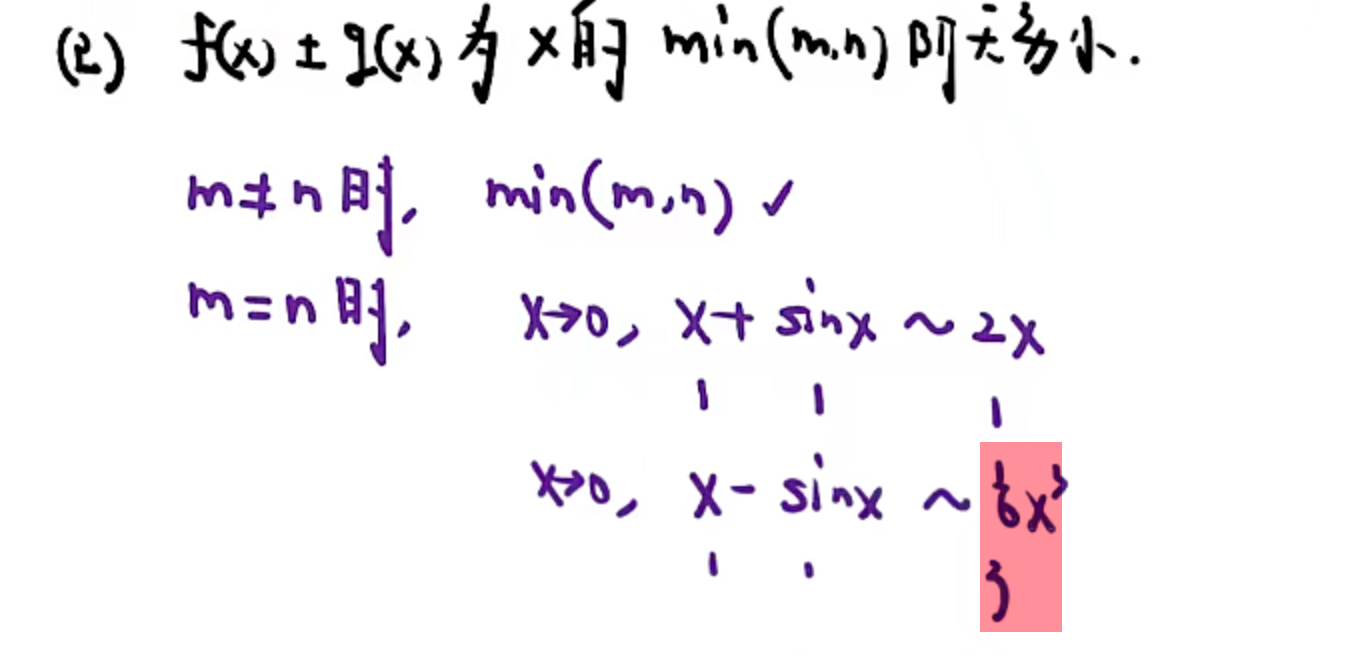 (2) f(x) ± g(x) 为 x 的 min(m,n) 阶无穷小.
m≠n 时, min(m,n) ✓
m=n 时, x→0, x+ sinx ~ 2x
1 1 1
x→0, x- sinx ~ 1/6 x³
1 1 3